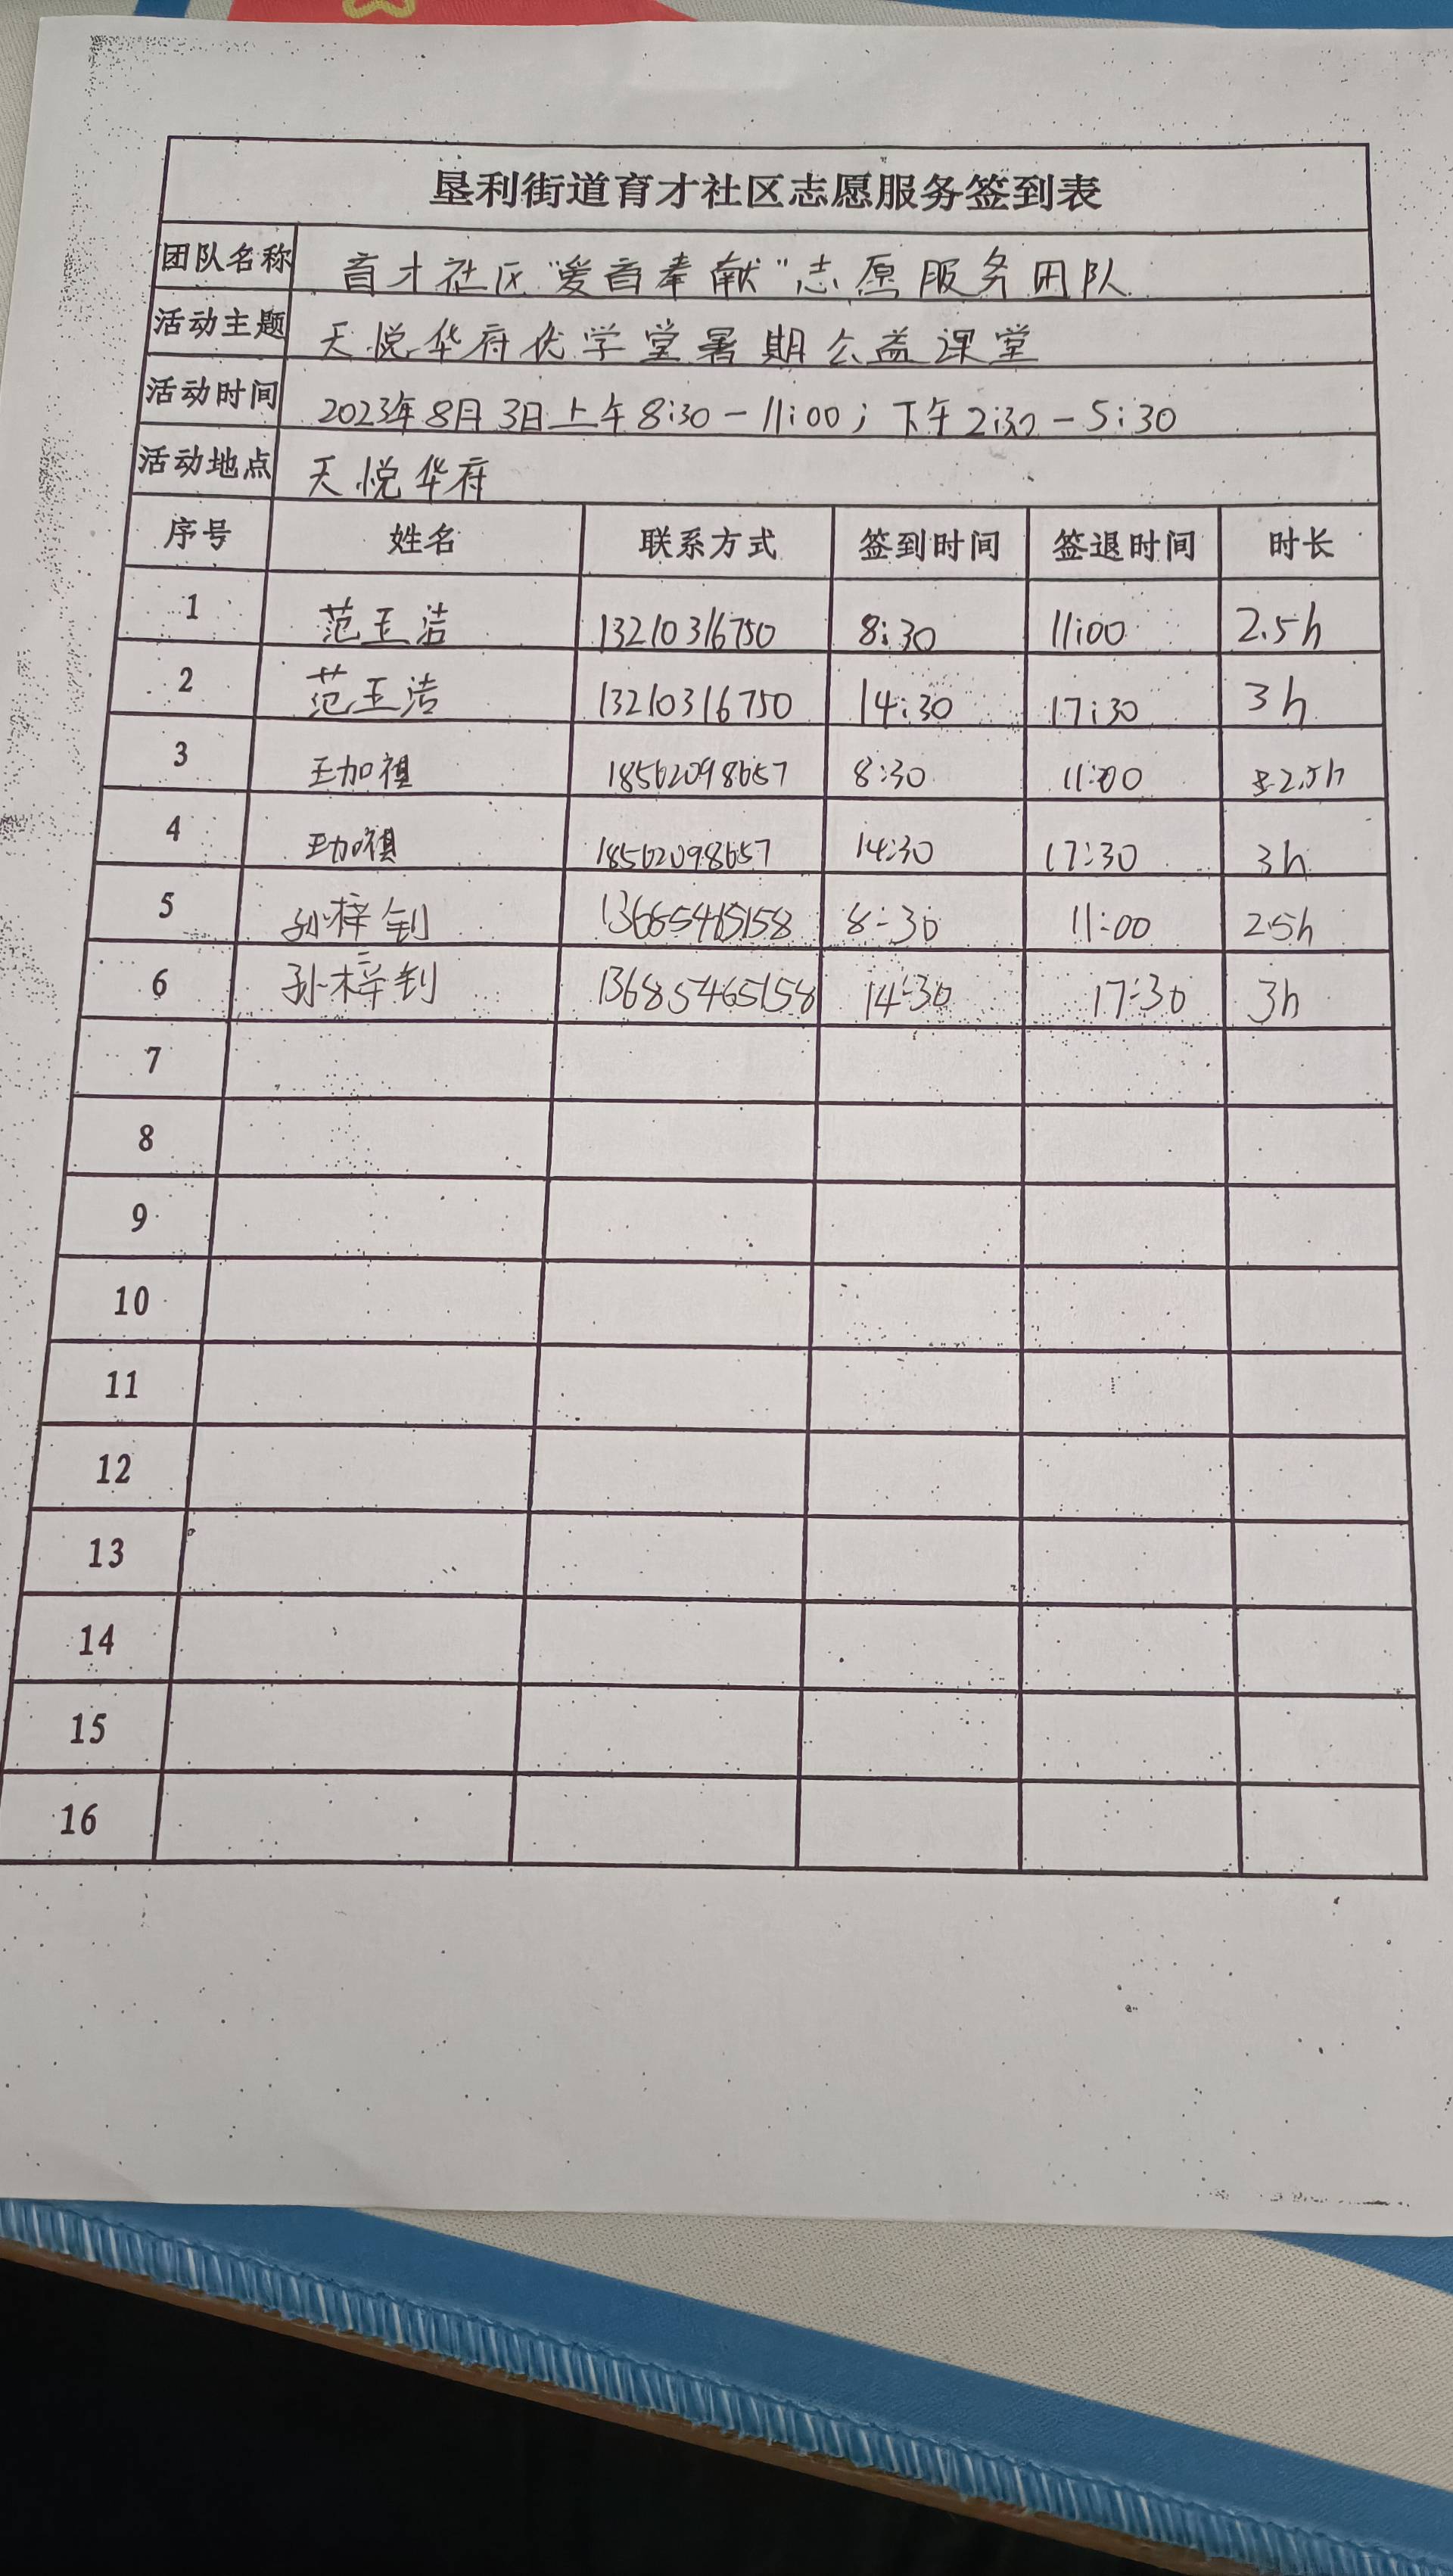 垦利街道育才社区志愿服务签到表
团队名称 育才社区“爱育奉献”志愿服务团队
活动主题 天悦华府优学堂暑期公益课堂
活动时间 2023年8月3日上午8:30-11:00;下午2:30-5:30
活动地点 天悦华府
序号 姓名 联系方式 签到时间 签退时间 时长
1 范玉洁 13210316750 8:30 11:00 2.5h
2 范玉洁 13210316750 14:30 17:30 3h
3 王加祺 18562098657 8:30 11:00 2.5h
4 王加祺 18562098657 14:30 17:30 3h
5 孙梓钊 8:30 11:00 2.5h
6 孙梓钊 13685465158 14:30 17:30 3h
7
8
9
10
11
12
13
14
15
16